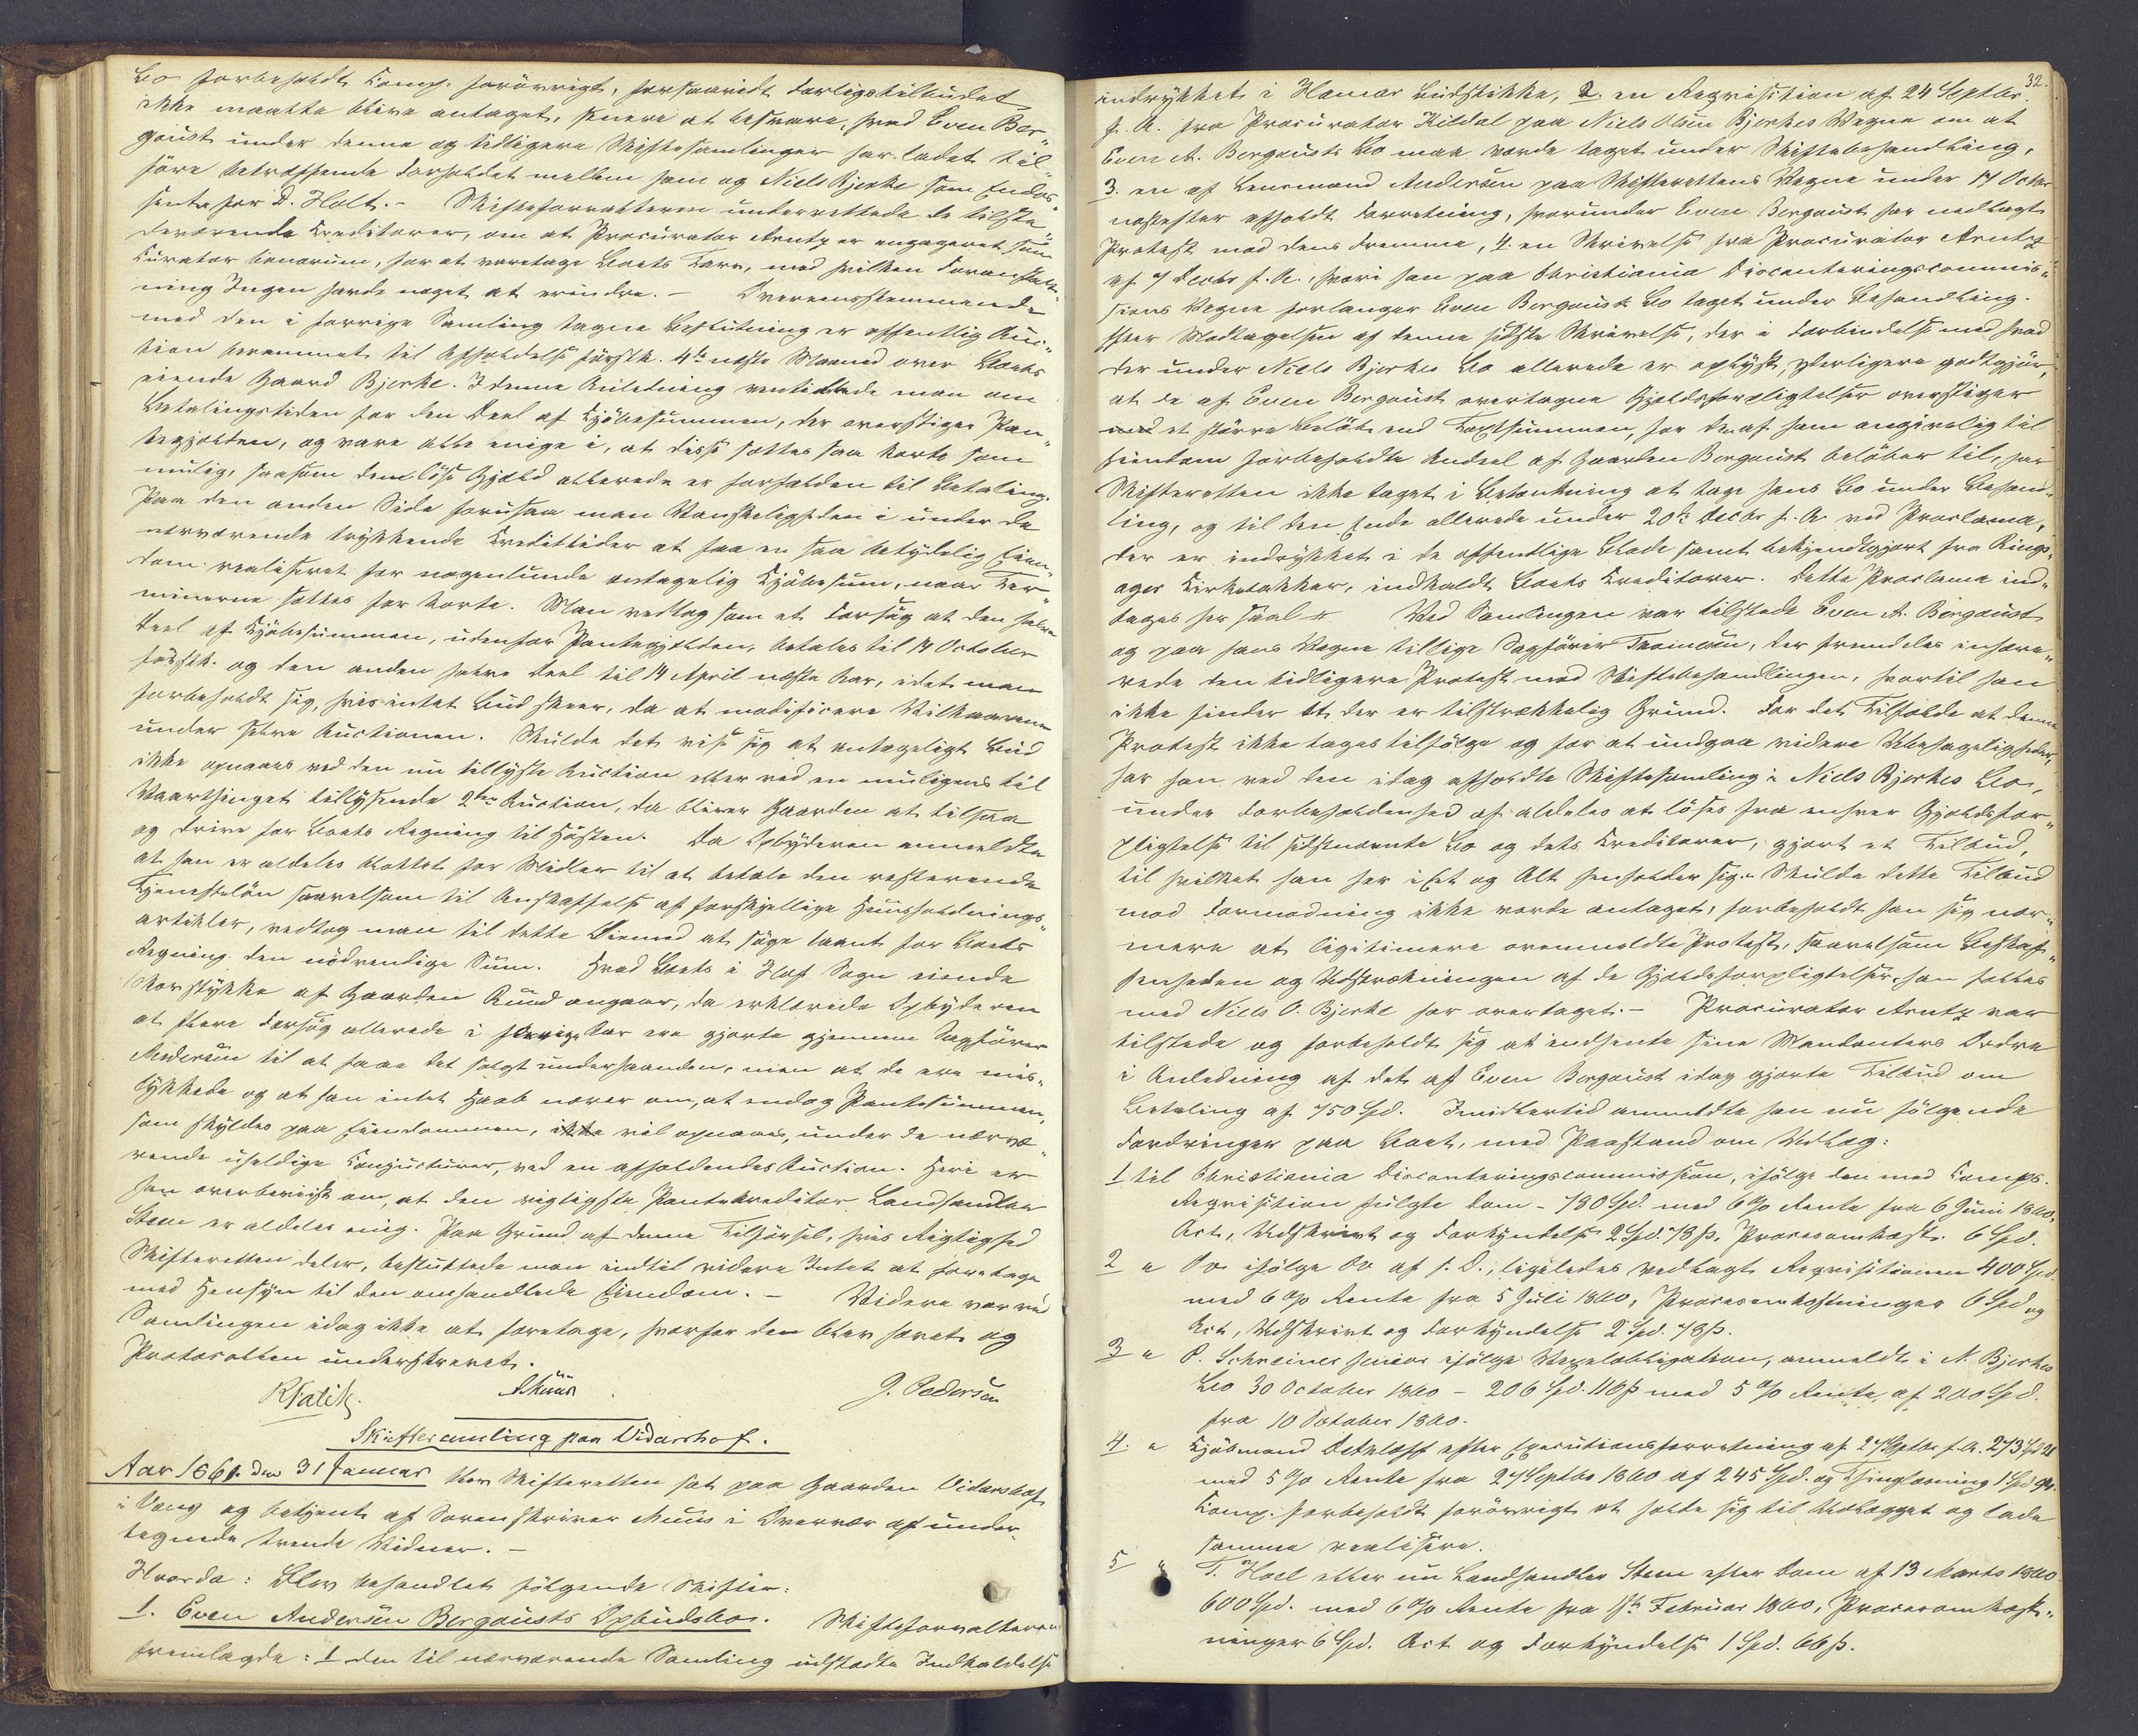 Bo forbeholdt Comp. forövrigt, forsaavidt Forligstilbudet
ikke maatte blive antaget, senere at besvare, hvad Even Ber„
goust under denne og tidligere Skiftesamlinger har ladet til„
före betræffende Forholdet mellem ham og Niels Bjerke som Endos„
sent for D. Holt. – Skifteforvalteren underrettede de tilste„
deværende Creditorer, om at Procurator Arntz er engageret som
Curator bonorum, for at varetage Boets Tarv, med hvilken Foranstalt„
ning Ingen havde noget at erindre. – Overensstemmende
med den i forrige Samling tagne Beslutning er offentlig Auc„
tion berammet til Afholdelse förstk. 4de næste Maaned over Boets
eiende Gaard Bjerke. I denne Anledning ventilerede man om
Betalingstiden for den Deel af Kjöbesummen, der overstiger Pan„
tegjælden, og vare alle enige i, at disse sættes saa korte som
mulig, saasom den löse Gjæld allerede er forfalden til Betaling.
Paa den anden Side forudsaa man Vanskeligheden i under de
nærværende trykkende Credittider at faa en saa betydelig Eien„
dom realiseret for nogenlunde antagelig Kjöbesum, naar Ter„
minerne sættes for korte. Man vedtog som et Forsög at den halve
Deel af Kjöbesummen, udenfor Pantegjælden, betales til 14 October
förstk. og den anden halve Deel til 14 April næste Aar, idet man
forbeholdt sig, hvis intet Bud skeer, da at modificere Vilkaarene
under selve Auctionen. Skulde det vise sig at antageligt Bud
ikke opnaaes ved den nu tillyste Auction eller ved en muligens til
Vaarthinget tillysende 2den Auction, da bliver Gaarden at tilsaa
og drive for Boets Regning til Hösten. Da Opbyderen anmeldte
at han er aldeles blottet for Midler til at betale den resterende
Tjenestelön saavelsom til Anskaffelse af forskjellige Huusholdnings„
artikler, vedtog man til dette Öiemed at söge laant for Boets
Regning den nödvendige Sum. Hvad Boets i Hof Sogn eiende
Skovstykke af Gaarden Rund angaaer, da erklærede Opbyderen
at flere Forsög allerede i forrige Aar ere gjorte gjennem Sagförer
Andersen til at faae det solgt underhaanden, men at de ere mis„
lykkede og at han intet Haab nærer om, at endog Pantesummen,
som skyldes paa Eiendommen, ikke vil opnaaes, under de nærvæ„
rende uheldige Conjuncturer, ved en afholdendes Auction. Heri er
han overbeviist om, at den vigtigste Pantekreditor Landhandler
Steen er aldeles enig. Paa Grund af denne Tilförsel, hvis Rigtighed
Skifteretten deler, besluttede man indtil videre Intet at foretage
med Hensyn til den omhandlede Eiendom. – Videre var ved
Samlingen idag ikke at foretage, hvorfor den blev hævet og
Protocollen underskrevet.
AMuus
J. Pedersen
Skiftesamling paa Vidarshof.
Aar 1861. den 31 Januar blev Skifteretten sat paa Gaarden Vidarshof
i Vang og betjent af Sorenskriver Muus i Overvær af under„
tegnede tvende Vidner. –
Hvorda: Blev behandlet fölgende Skifter:
1. Even Andersen Bergousts Opbudsbo. Skifteforvalteren
fremlagde: 1 den til nærværende Samling udstedte Indkaldelse
32.
indrykket i Hamar Budstikke, 2. en Reqvisition af 24 Septbr.
f. A. fra Procurator Kildal paa Niels Olsen Bjerkes Vegne om at
Even A. Bergousts Bo maa vorde taget under Skiftebehandling,
3. en af Lensmand Andersen paa Skifterettens Vegne under 17 Octbr
næstefter afholdt Forretning, hvorunder Even Bergoust har nedlagt
Protest mod dens Fremme, 4. en Skrivelse fra Procurator Arntz
af 7 Decbr f. A., hvori han paa Christiania Disconteringscommis„
sions Vegne forlanger Even Bergousts Bo taget under Behandling.
Efter Modtagelsen af denne sidste Skrivelse, der i Forbindelse med hvad
der under Niels Bjerkes Bo allerede er oplyst, yderligere godtgjör,
at de af Even Bergoust overtagne Gjældsforpligtelser overstiger
et större Belöb end Taxtsummen, for de af ham angivelig til
Eiendom forbeholdte Andeel af Gaarden Bergoust belöber til, har
Skifteretten ikke taget i Betænkning at tage hans Bo under Behand„
ling, og til den Ende allerede under 20de Decbr f. A. ved Proclama,
der er indrykket i de offentlige Blade samt bekjendtgjort fra Rings„
ager Kirkebakker, indkaldt Boets Creditorer. Dette Proclama ind„
tages her saal. Ved Samlingen var tilstede Even A. Bergoust
og paa hans Vegne tillige Sagförer Thomesen, der fremdeles inhære„
rede den tidligere Protest mod Skiftebehandlingen, hvortil han
ikke finder at der er tilstrækkelig Grund. For det Tilfælde at denne
Protest ikke tages tilfölge og for at undgaa videre Ubehageligheder,
har han ved den idag afholdte Skiftesamling i Niels Bjerkes Bo,
under Forbeholdenhed af aldeles at löses fra enhver Gjældsfor„
pligtelse til sidstnævnte Bo og dets Creditorer, gjort et Tilbud,
til hvilket han her i Et og Alt henholder sig. Skulde dette Tilbud
mod Formodning ikke vorde antaget, forbeholdt han sig nær„
mere at legitimere ovenmeldte Protest, saavelsom Beskaf„
fenheden og Udstrækningen af de Gjældsforpligtelser, han fælles
med Niels O. Bjerke har overtaget. – Procurator Arntz var
tilstede og forbeholdt sig at indhente sine Mandanters Ordre
i Anledning af det af Even Bergoust idag gjorte Tilbud om
Betaling af 750 Spd. Imidlertid anmeldte han nu fölgende
Fordringer paa Boet, med Paastand om Udlæg:
1 til Christiania Disconteringscommission, ifölge den med Comps.
Reqvisition fulgte Dom – 780 Spd. med 6 % Rente fra 6 Juni 1860,
Act, Udskrivt og Forkyndelse 2 Spd. 78 ß. Procesomkost. 6 Spd.
2 „ Do ifölge Do af s. D., ligeledes vedlagt Reqvisitionen 400 Spd.
med 6 % Rente fra 5 Juli 1860, Procesomkostninger 6 Spd og
Act, Udskrivt og Forkyndelse 2 Spd. 78 ß.
3 „ P. Schreiner senior ifölge Vexelobligation, anmeldt i N. Bjerkes
Bo 30 October 1860 – 206 Spd. 116 ß med 5 % Rente af 200 Spd.
fra 10 October 1860.
4. „ Kjöbmand efter Executionsforretning af 27 Septbr f. A. 273 Spd
med 5 % Rente fra 27 Septbr 1860 af 245 Spd. og Thinglæsning 1 Spd
Comp. forbeholdt forövrigt at holde sig til Udlægget og lade
samme realisere.
5 „ T. Hoel eller nu Landhandler Steen efter Dom af 13 Marts 1860
600 Spd. med 6 % Rente fra Februar 1860, Procesomkost„
ninger 6 Spd. Act og Forkyndelse 1 Spd. 66 ß.